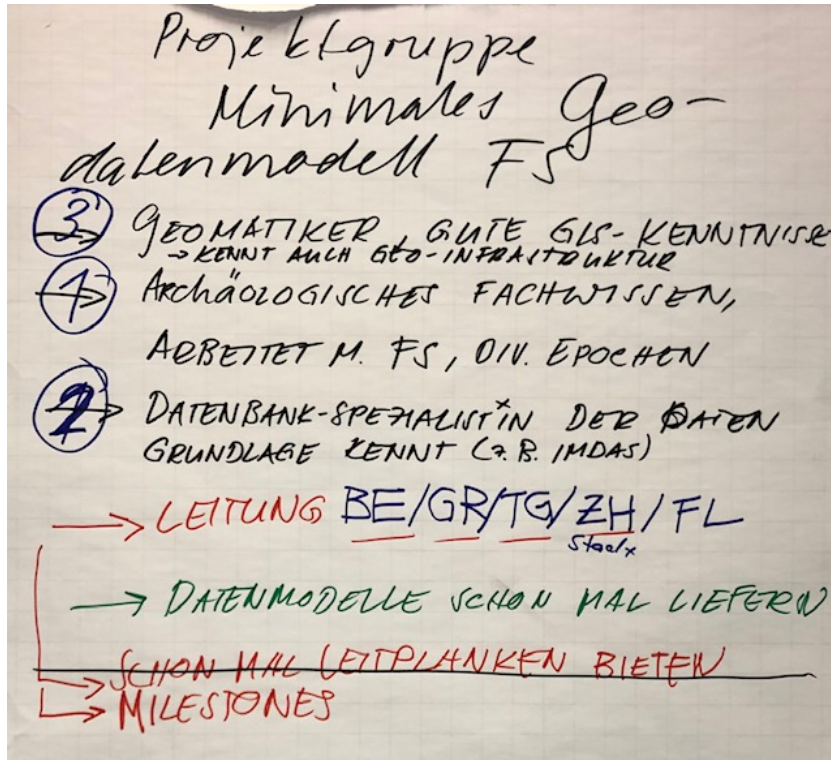 Projektgruppe
Minimales Geo-
datenmodell FS
3 → GEOMATIKER, GUTE GIS-KENNTNISSE
→ KENNT AUCH GEO-INFRASTRUKTUR
1 → ARCHÄOLOGISCHES FACHWISSEN,
ARBEITET M. FS, DIV. EPOCHEN
2 → DATENBANK-SPEZIALIST*IN DER DATEN
GRUNDLAGE KENNT (z.B. IMDAS)
→ LEITUNG BE/GR/TG/ZH/FL
→ DATENMODELLE SCHON MAL LIEFERN
→ SCHON MAL LEITPLANKEN BIETEN
→ MILESTONES